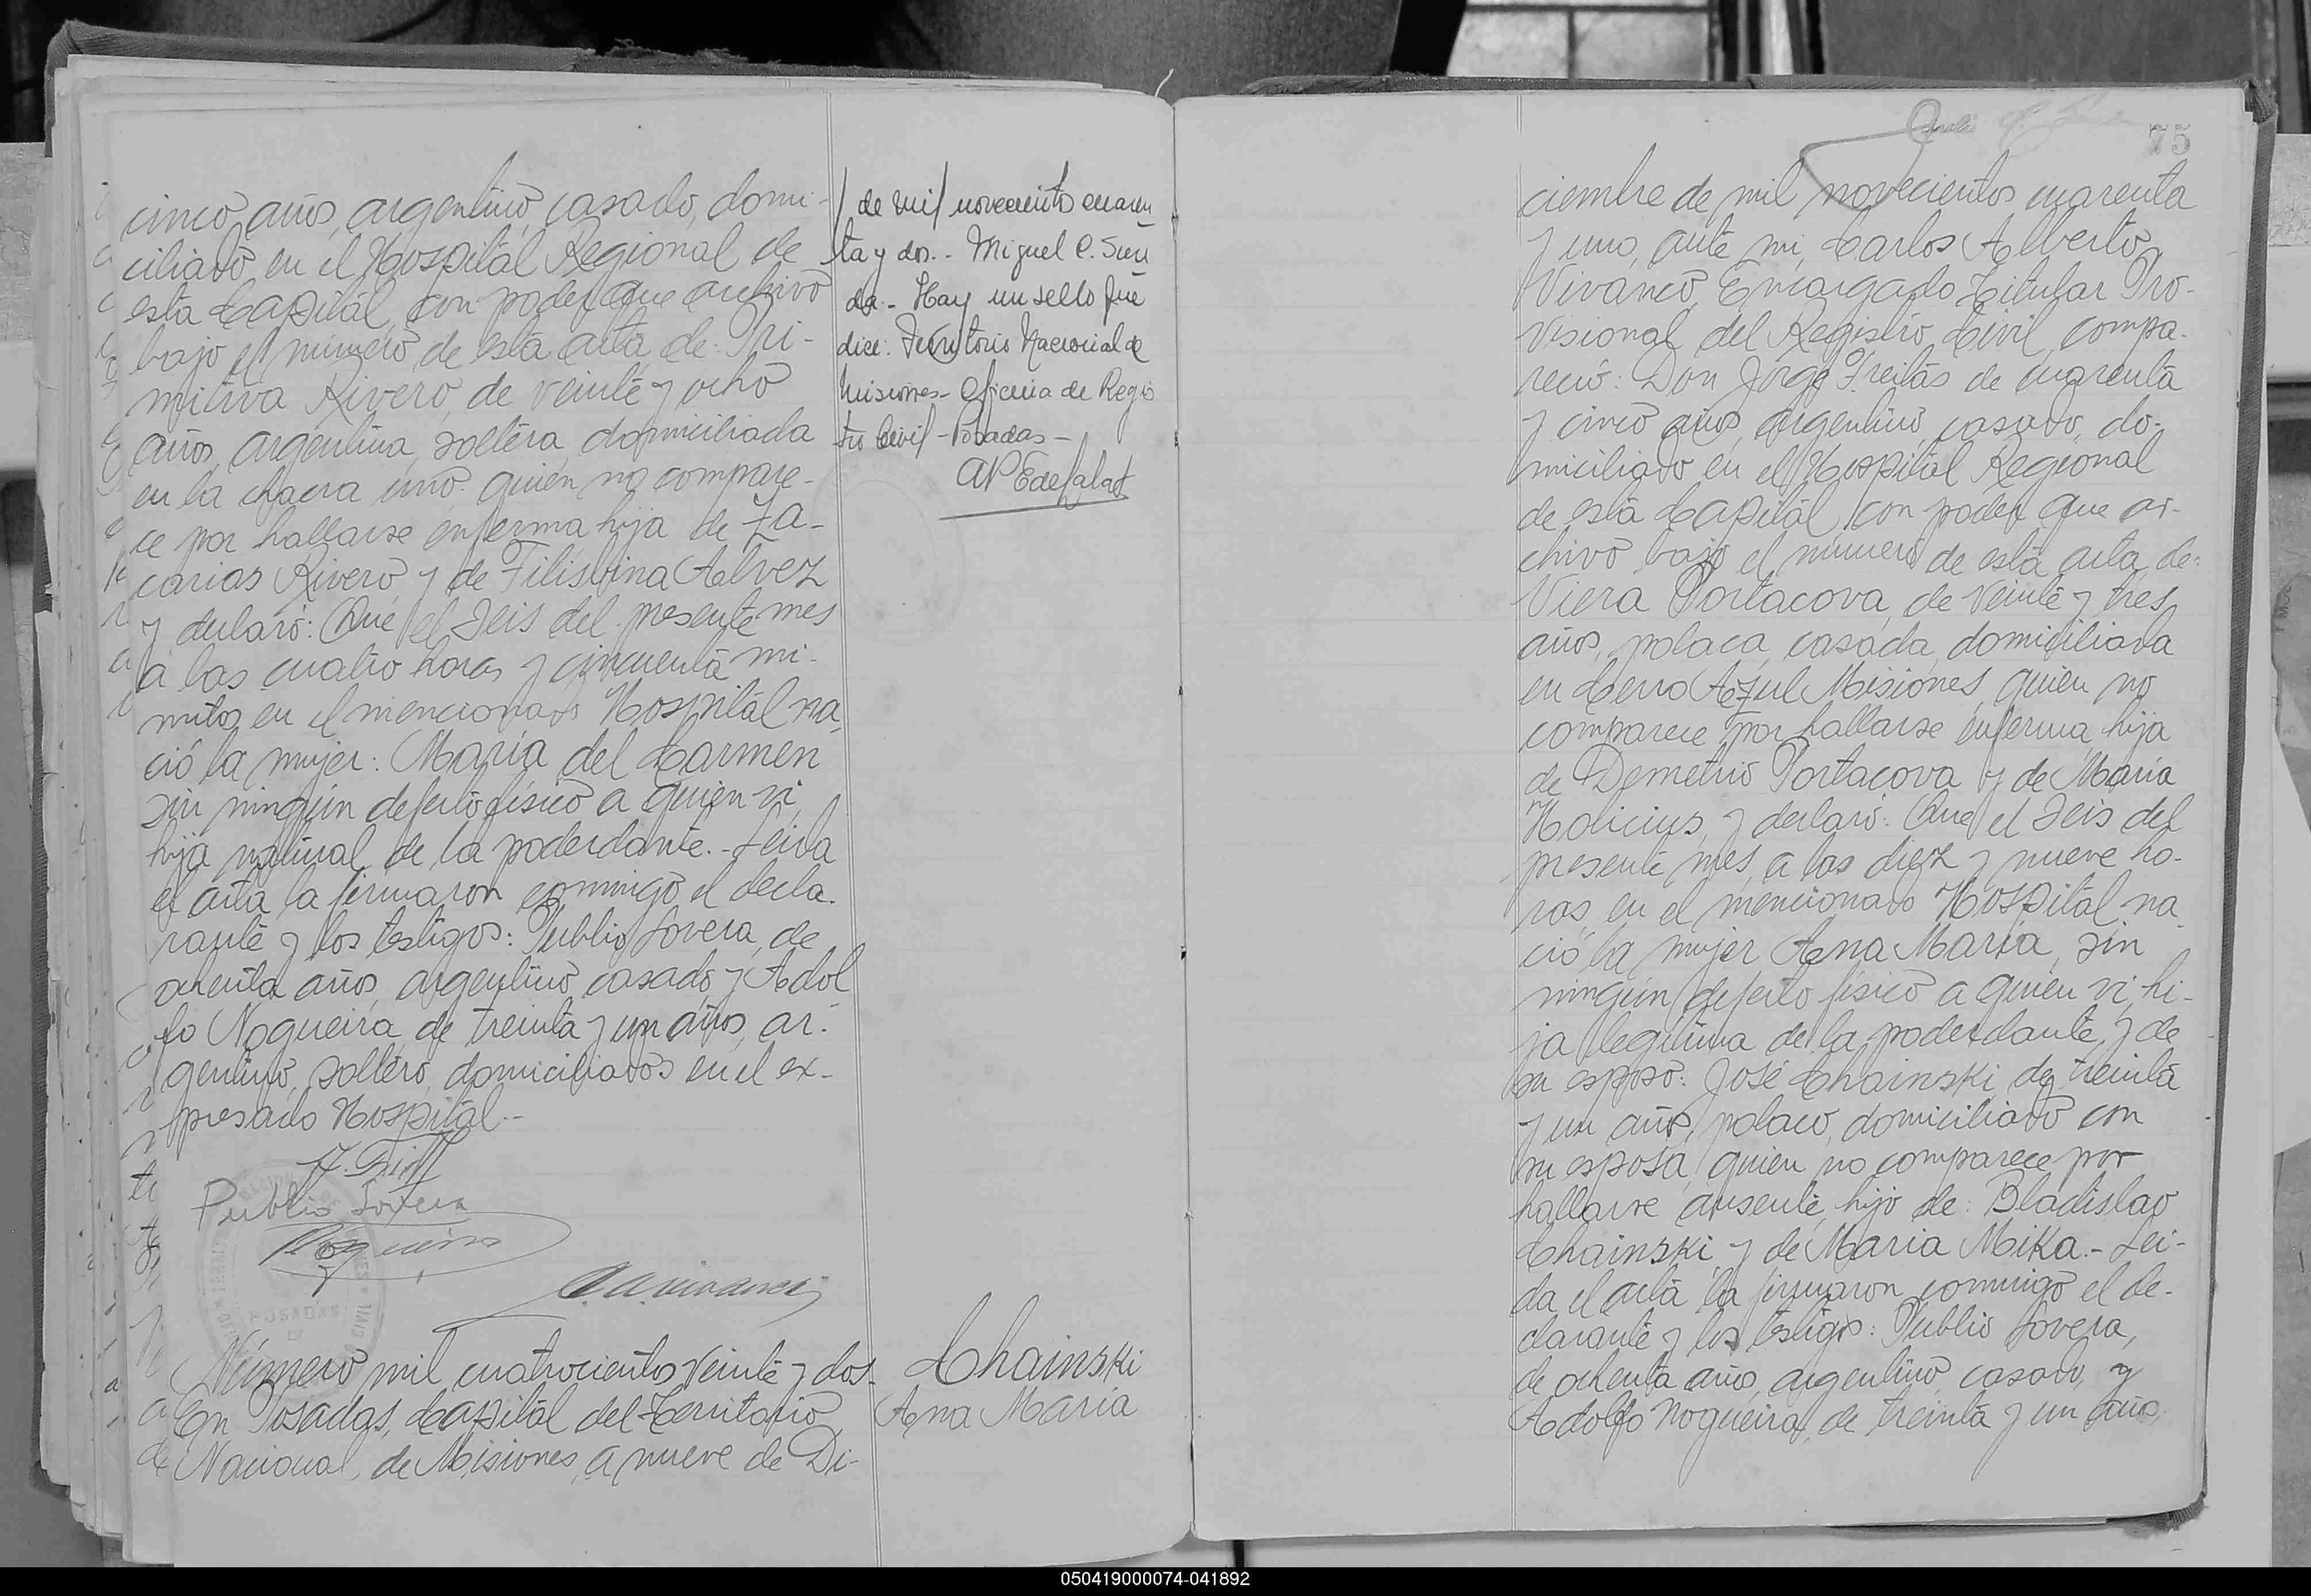 cinco años, argentino, casado, domi-
ciliado en el Hospital Regional de
esta Capital, con poder que archivo
bajo el número de esta acta de: Pri-
mitiva Rivero, de veinte y ocho
años, argentina, soltera, domiciliada
en la chacra uno, quien no compare-
ce por hallarse enferma, hija de Za-
carias Rivero y de Filisbina Alvez
y declaró: Que el seis del presente mes
a las cuatro horas y cincuenta mi-
nutos en el mencionado Hospital na-
ció la mujer: María del Carmen
sin ningún defecto físico a quien vi,
hija natural de la poderdante.- Leida
el acta la firmaron conmigo el decla-
rante y los testigos: Publio Lovera, de
ochenta años, argentino, casado y Adol
fo Nogueira, de treinta y un años, ar-
gentino, soltero, domiciliados en el ex-
presado Hospital.-
Publio Lovera
Nogueira
POSADAS
CIVIL
Número mil cuatrocientos veinte y dos.
En Posadas, Capital del Territorio
Nacional, de Misiones, a nueve de Di-
/ de mil novecientos cuaren
ta y dos.- Miguel C.
da.- Hay un sello que
dice: Territorio Nacional de
Misiones- Oficina de Regis
tro Civil - Posadas -
Chainski
Ana María
75
ciembre de mil novecientos cuarenta
y uno, ante mi, Carlos Alberto
Vivanco, Encargado Titular Pro-
visional del Registro Civil, compa-
reció: Don Jorge Freitas de cuarenta
y cinco años, argentino, casado, do-
miciliado en el Hospital Regional
de esta Capital, con poder que ar-
chivo bajo el número de esta acta, de:
Viera Portacova, de veinte y tres
años, polaca, casada, domiciliada
en Cerro Azul Misiones, quien no
comparece por hallarse enferma, hija
de Demetrio Portacova y de María
Holicius, y declaró: Que el seis del
presente mes, a las diez y nueve ho-
ras, en el mencionado Hospital na
ció la mujer Ana María, sin
ningún defecto físico a quien vi, hi-
ja legítima de la poderdante, y de
su esposo: José Chainski, de treinta
y un años, polaco, domiciliado con
su esposa, quien no comparece por
hallarse ausente, hijo de: Bladislao
Chainski y de María Mika.- Lei-
da el acta la firmaron conmigo el de-
clarante y los testigos: Publio Lovera,
de ochenta años, argentino, casado, y
Adolfo Nogueira, de treinta y un años,
050419000074-041892